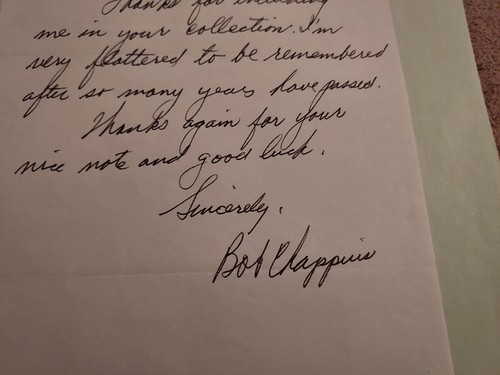 Thanks for including
me in your collection. I'm
very flattered to be remembered
after so many years have passed.
Thanks again for your
nice note and good luck.
Sincerely,
Bob Chappuis